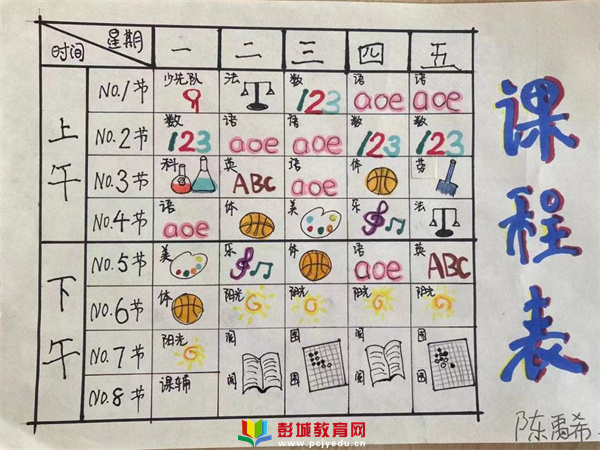 星期 一 二 三 四 五
时间
上午
NO.1节 少先队 法 数 123 语 aoe 语 aoe
NO.2节 数 123 语 aoe 语 aoe 数 123 数 123
NO.3节 科 英 ABC 语 aoe 体 劳
NO.4节 语 aoe 体 美 乐 法
下午
NO.5节 美 乐 体 语 aoe 英 ABC
NO.6节 体 阳光 阳光 阳光 阳光
NO.7节 阳光 阅 围 阅 围
NO.8节 课辅 阅 围 阅 围
课程表
陈禹希
彭城教育网
www.pcjyedu.cn